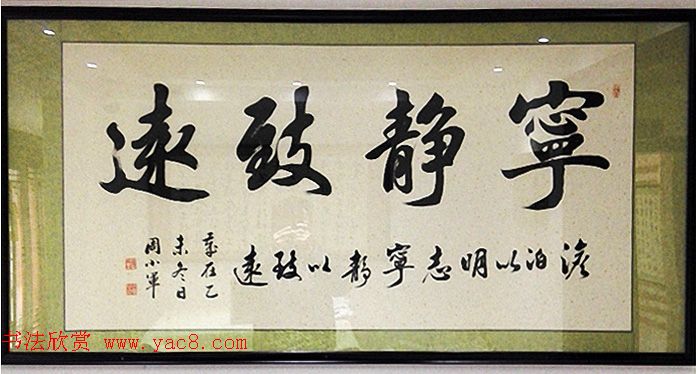 寧靜致遠
澹泊以明志寧靜以致遠
歲在乙
未冬日
周小軍
书法欣赏 www.yac8.com